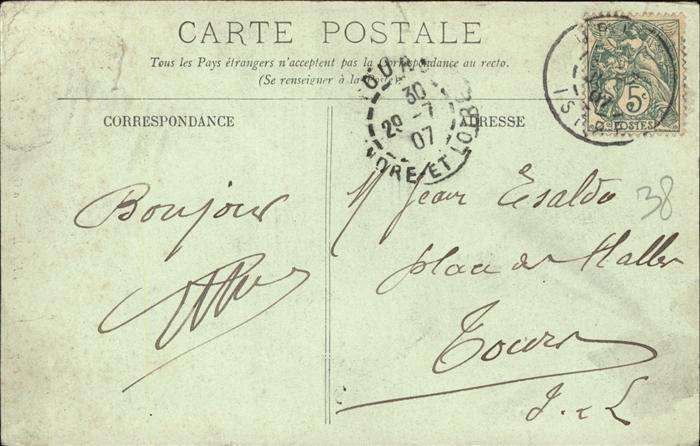 CARTE POSTALE
Tous les Pays étrangers n'acceptent pas la Correspondance au recto.
(Se renseigner à la poste)
CORRESPONDANCE
ADRESSE
TOURS
30
29 -7
07
INDRE-ET-LOIRE
5c
POSTES
38
Bonjour
M Jean Esaldo
place des Halles
Tours
I. & L